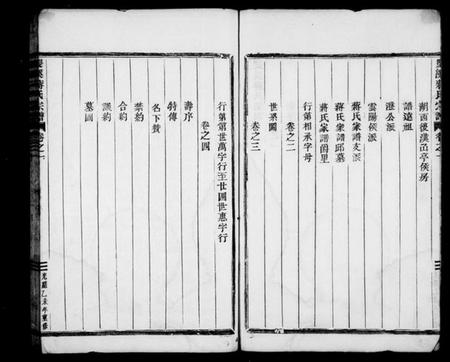 湖西後漢𠙶亭侯房
譜遠祖
澄公派
雲陽侯派
蔣氏家譜支派
蔣氏家譜邱墓
蔣氏家譜爵里
行第相承字母
卷之二
世系圖
卷之三
行第第世萬字行至廿四世惠字行
卷之四
壽序
特傳
名下贊
禁約
合約
議約
墓圖
光緒乙未年重修